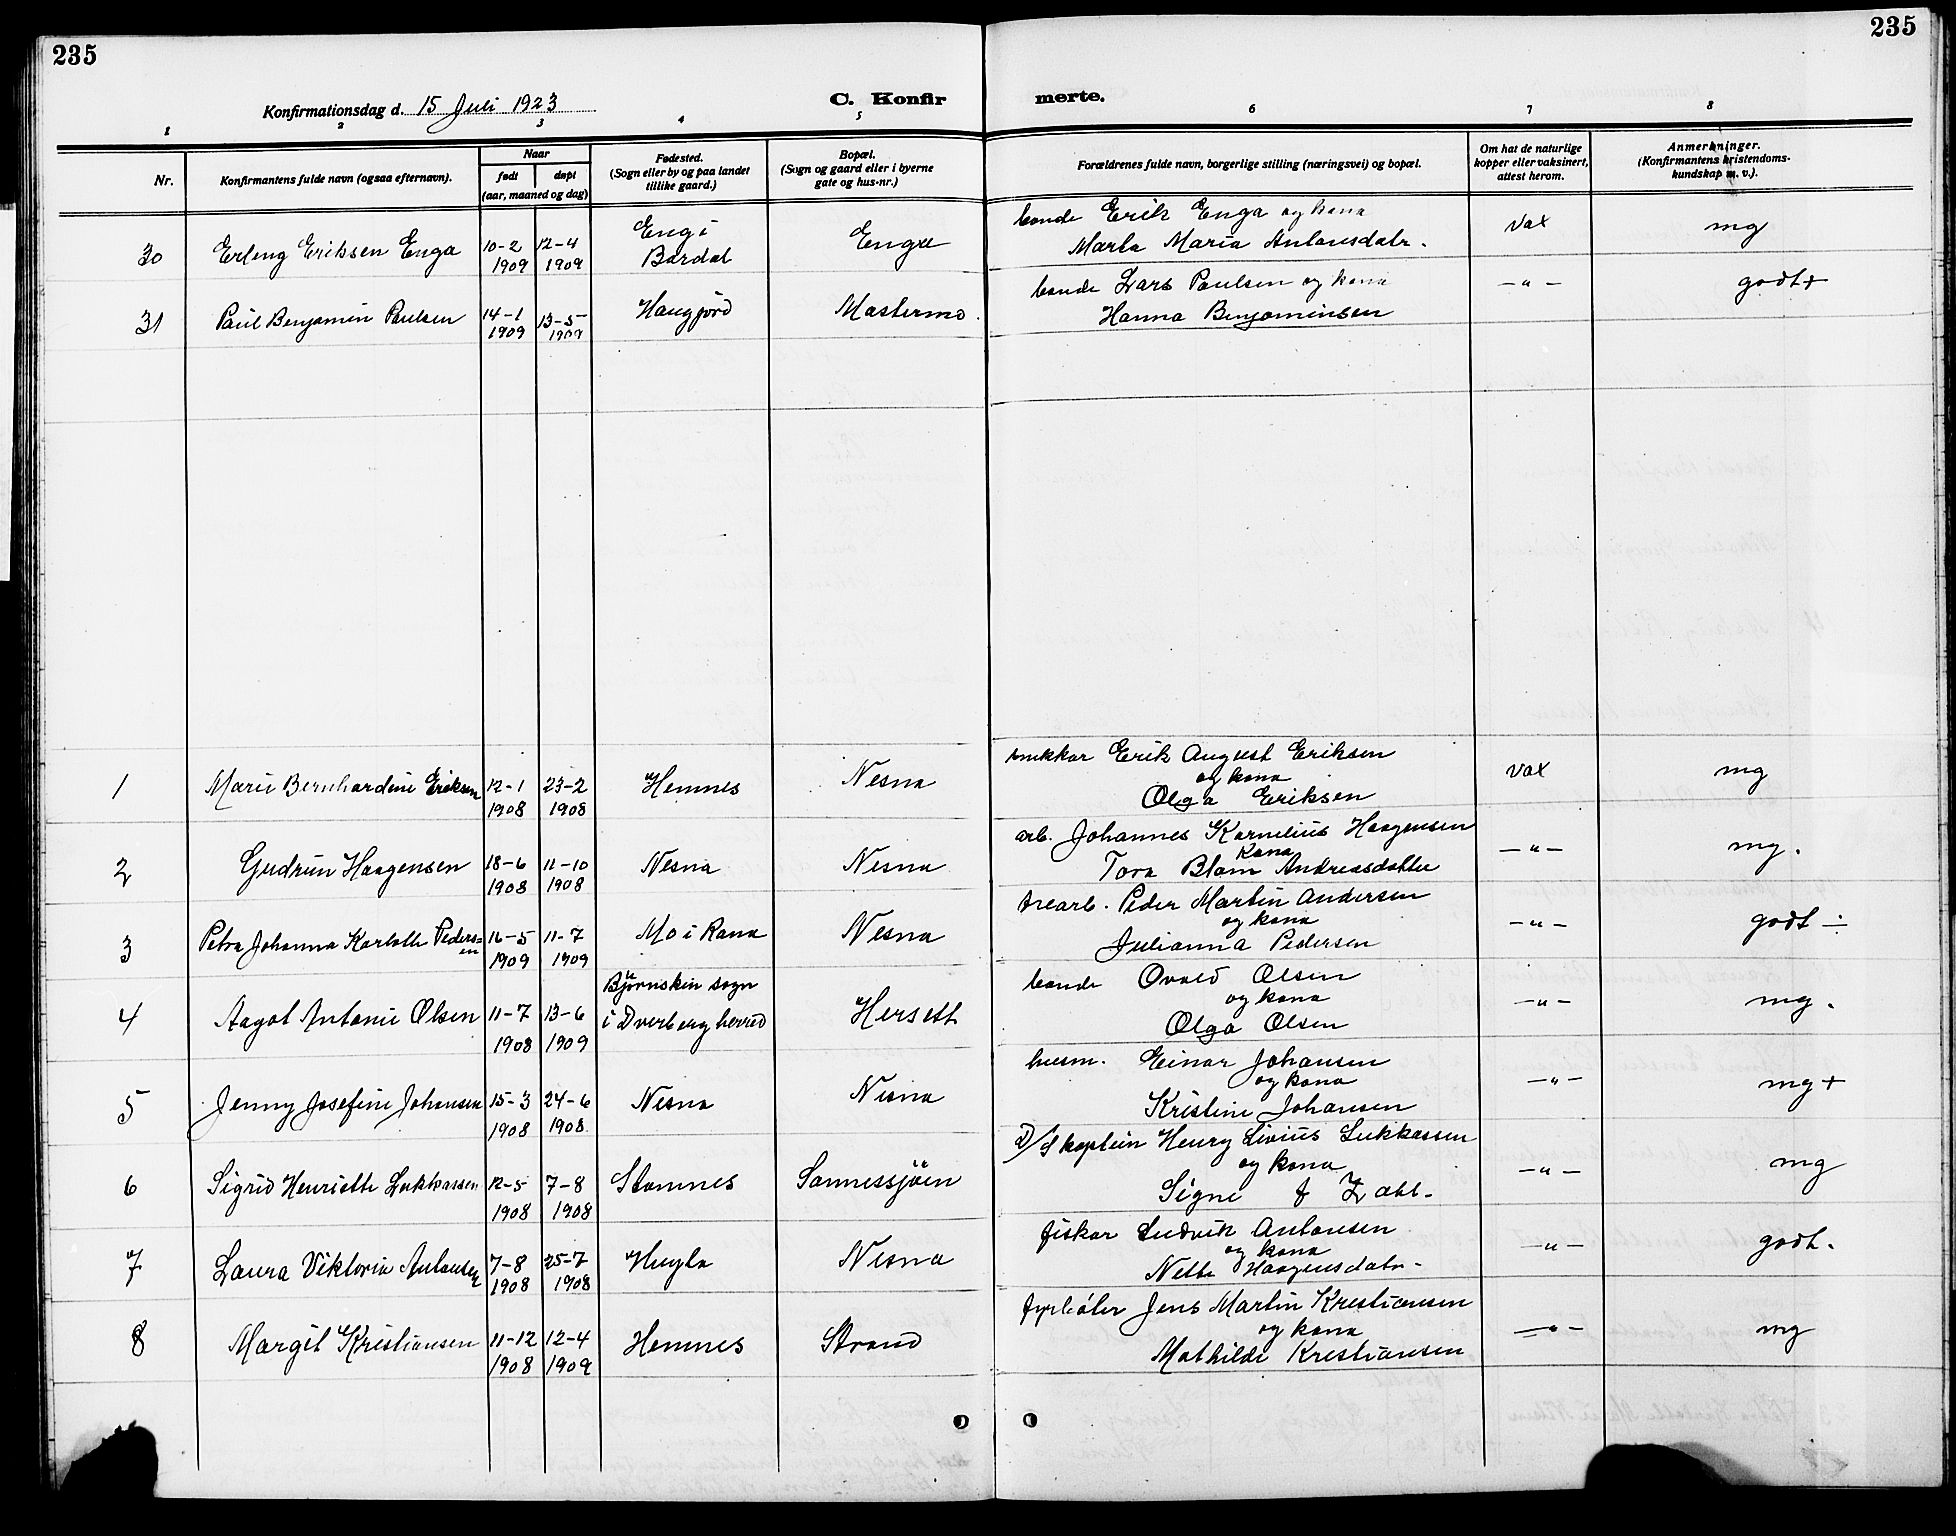 235
235
Konfirmationsdag d. 15 Juli 1923
C. Konfir
merte.
1 2 3 4 5 6 7 8
Nr.
Konfirmantens fulde navn (ogsaa efternavn).
Naar
født
døpt
(aar, maaned og dag)
Fødested.
(Sogn eller by og paa landet
tillike gaard.)
Bopæl.
(Sogn og gaard eller i byerne
gate og hus-nr.)
Forældrenes fulde navn, borgerlige stilling (næringsvei) og bopæl.
Om hat de naturlige
kopper eller vaksinert,
attest herom.
Anmerkninger.
(Konfirmantens kristendoms-
kundskap m. v.).
30 Erling Eriksen Enga 10-2 1909 12-4 1909 Eng i Bardal Enga bonde Erik Enga og kona vax mg
Marta Maria Antonsdatr.
31 Paul Benjamin Paulsen 14-1 1909 13-5- 1909 Haugjord Mastermo. bonde Lars Paulsen og kona -"- godt+
Hanna Benjaminsen
1 Marie Bernhardine Eriksen 12-1 1908 23-2 1908 Hemnes Nesna snikkar Erik August Eriksen vax mg
og kona
Olga Eriksen
2 Gudrun Haagensen 18-6 1908 11-10 1908 Nesna Nesna arb. Johannes Kornelius Haagensen -"- mg.
kona
Tora Blom Andreasdatter
3 Petra Johanna Karlotte Peders=en 16-5 1909 11-7 1909 Mo i Rana Nesna trearb. Peder Martin Andersen -"- godt ÷
og kona
Julianna Pedersen
4 Aagot Antonie Olsen 11-7 1908 13-6 1909 Bjørnskin sogn i Dverberg herred Hersett bonde Ovald Olsen -"- mg.
og kona
Olga Olsen
5 Jenny Josefine Johansen 15-3 1908 24-6 1908. Nesna Nesna husm. Einar Johansen -"- mg+
og kona
Kristine Johansen
6 Sigrid Henriette Lukkassen 12-5 1908 7-8 1908 Stamnes Sannessjöen D/S kaptein Henry Livius Lukkassen -"- mg
og kona
Signe f Zahl-
7 Laura Viktoria Antonsen 7-8 1908 25-7 1908 Hugla Nesna fiskar Ludvik Antonsen -"- godt.
og kona
Nette Haagensdatr-
8 Margit Kristiansen 11-12 1908 12-4 1909 Hemnes Strand Jens Martin Kristiansen -"- mg
og kona
Mathilde Kristiansen